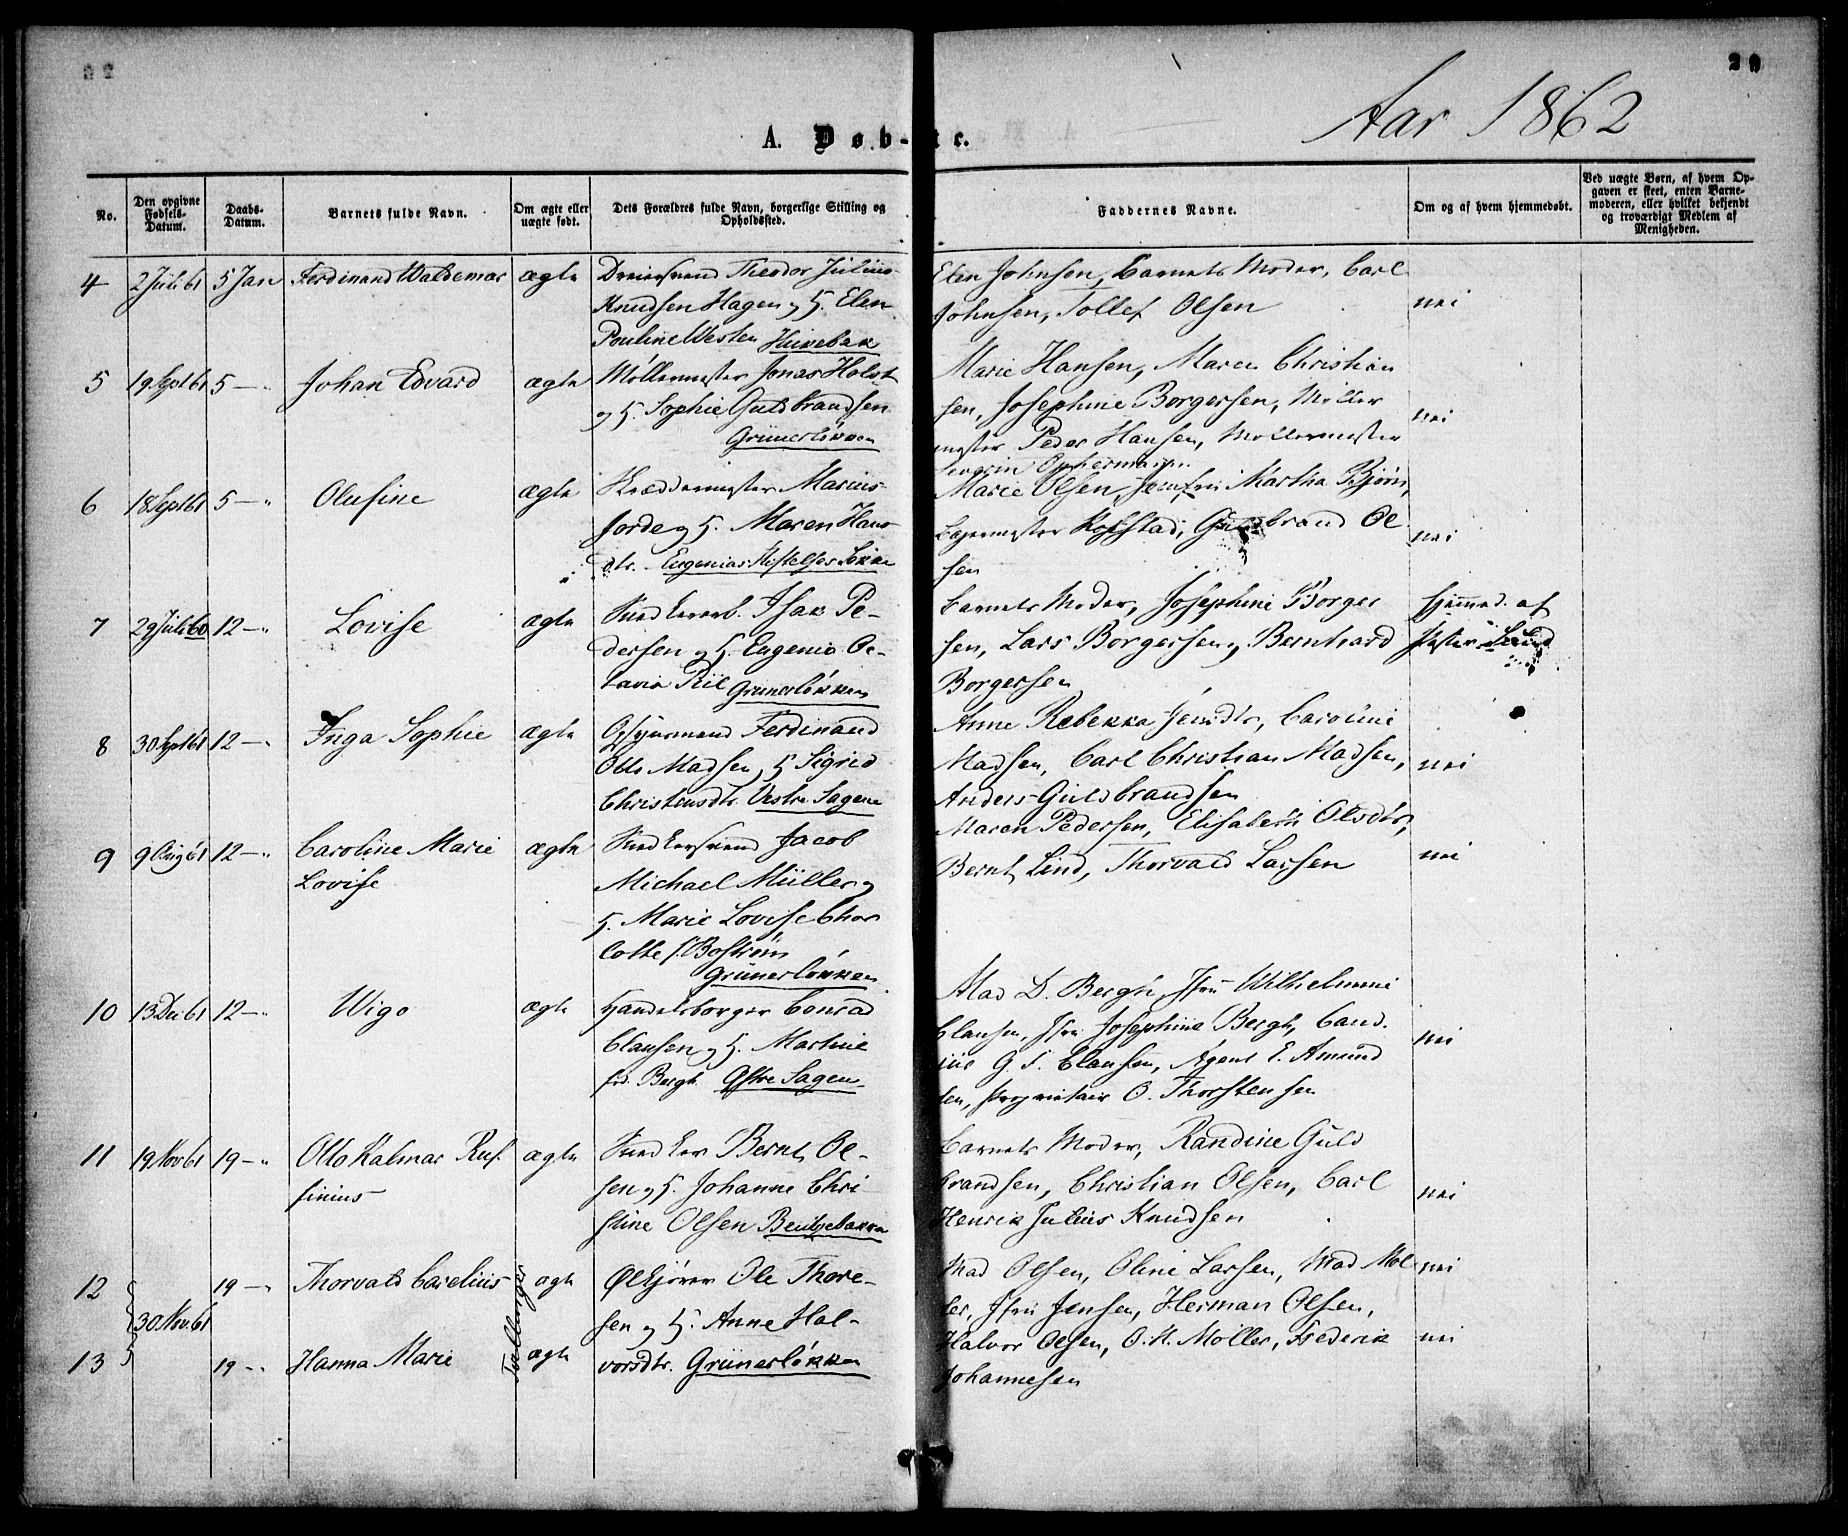 20
Aar 1862
A. Døb-te.
No.
Den opgivne Fødsels-Datum.
Daabs-Datum.
Barnets fulde Navn.
Om ægte eller uægte født.
Dets Forældres fulde Navn, borgerlige Stilling og Opholdssted.
Faddernes Navne.
Om og af hvem hjemmedøbt.
Ved uægte Børn, af hvem Opgaven er skeet, enten Barnemoderen, eller hvilket bekjendt og troværdigt Medlem af Menigheden.
4 2 Juli 61 5 Jan Ferdinand Waldemar ægte
Dreiersvend Theodor Julius
Knudsen Hagen og H. Elen
Pouline Westen
Elen Johnsen, Barnets Moder, Carl
Johnsen, Tollef Olsen
nei
5 19 Sept 61 5 —" Johan Edvard ægte
Møllermester Jonas Holst
og H. Sophie Guldbrandsen
Grünerløkken
Marie Hansen, Maren Christian
sen, Josephine Borgersen, Møller
mester Peder Hansen, Møllermester
nei
6 18 Sept 61 5 —" Olufine ægte
Skræddermester Marius
Jorde og H. Maren Hans
dtr. Eugenias Stiftelses Løkke
Marie Olsen, Jomfru Martha Bjørn,
Bagermester Kopstad, Guldbrand Ol
sen
nei
7 29 Juli 60 12 —" Lovise ægte
Snedkerarb. Isak Pe-
dersen og H. Eugenia Oc-
tavia Riil Grünerløkken
Barnets Moder, Josephine Borger
sen, Lars Borgersen og Bernhard
Borgersen
hjemmed. af
Pastor Lund
8 30 Sept 61 12 —" Inga Sophie ægte
Opsynsmand Ferdinand
Otto Madsen og H Sigrid
Christensdtr. Vestre Sagene
Anne Rebekka Jensdtr, Caroline
Madsen, Carl Christian Madsen,
Anders Guldbrandsen
nei
9 9 Aug 61 12 —" Caroline Marie
Lovise
ægte
Snedkersvend Jacob
Michael Müller og
H. Marie Lovise Char
lotte f. Bostrøm
Grünerløkken
Maren Pedersen, Elisabeth Olsdtr,
Bernt Lind, Thorvald Larsen
nei
10 13 Dec 61 12 —" Wigo ægte
Handelsborger Conrad
Clausen og H. Martine
fød. Bergh Østre Sagen
Mad D. Bergh, Jfru Wilhelmine
Clausen, Jfru Josephine Bergh, Cand.
jur G. S. Clausen, Agent E. Amund
sen, Proprietair O. Thorstensen
nei
11 19 Nov 61 19 —" Otto Kalmar Ruf
finius
ægte
Snedker Bernt Ol-
sen og H. Johanne Chri
stine Olsen Bentsebakken
Barnets Moder, Randine Guld
brandsen, Christian Olsen, Carl
Henrik Julius Knudsen
nei
12 30 Nov. 61 19 —" Thorvald Carelius ægte
Tvillinger
Ølkjører Ole Thore-
sen og H. Anne Hal-
vorsdtr. Grünerløkken
Mad Olsen, Oline Larsen, Mad Møl
ler, Jfru Jensen, Herman Olsen,
Halvor Olsen, O. H. Møller, Frederik
Johannesen
nei
13 19 —" Hanna Marie ægte
nei